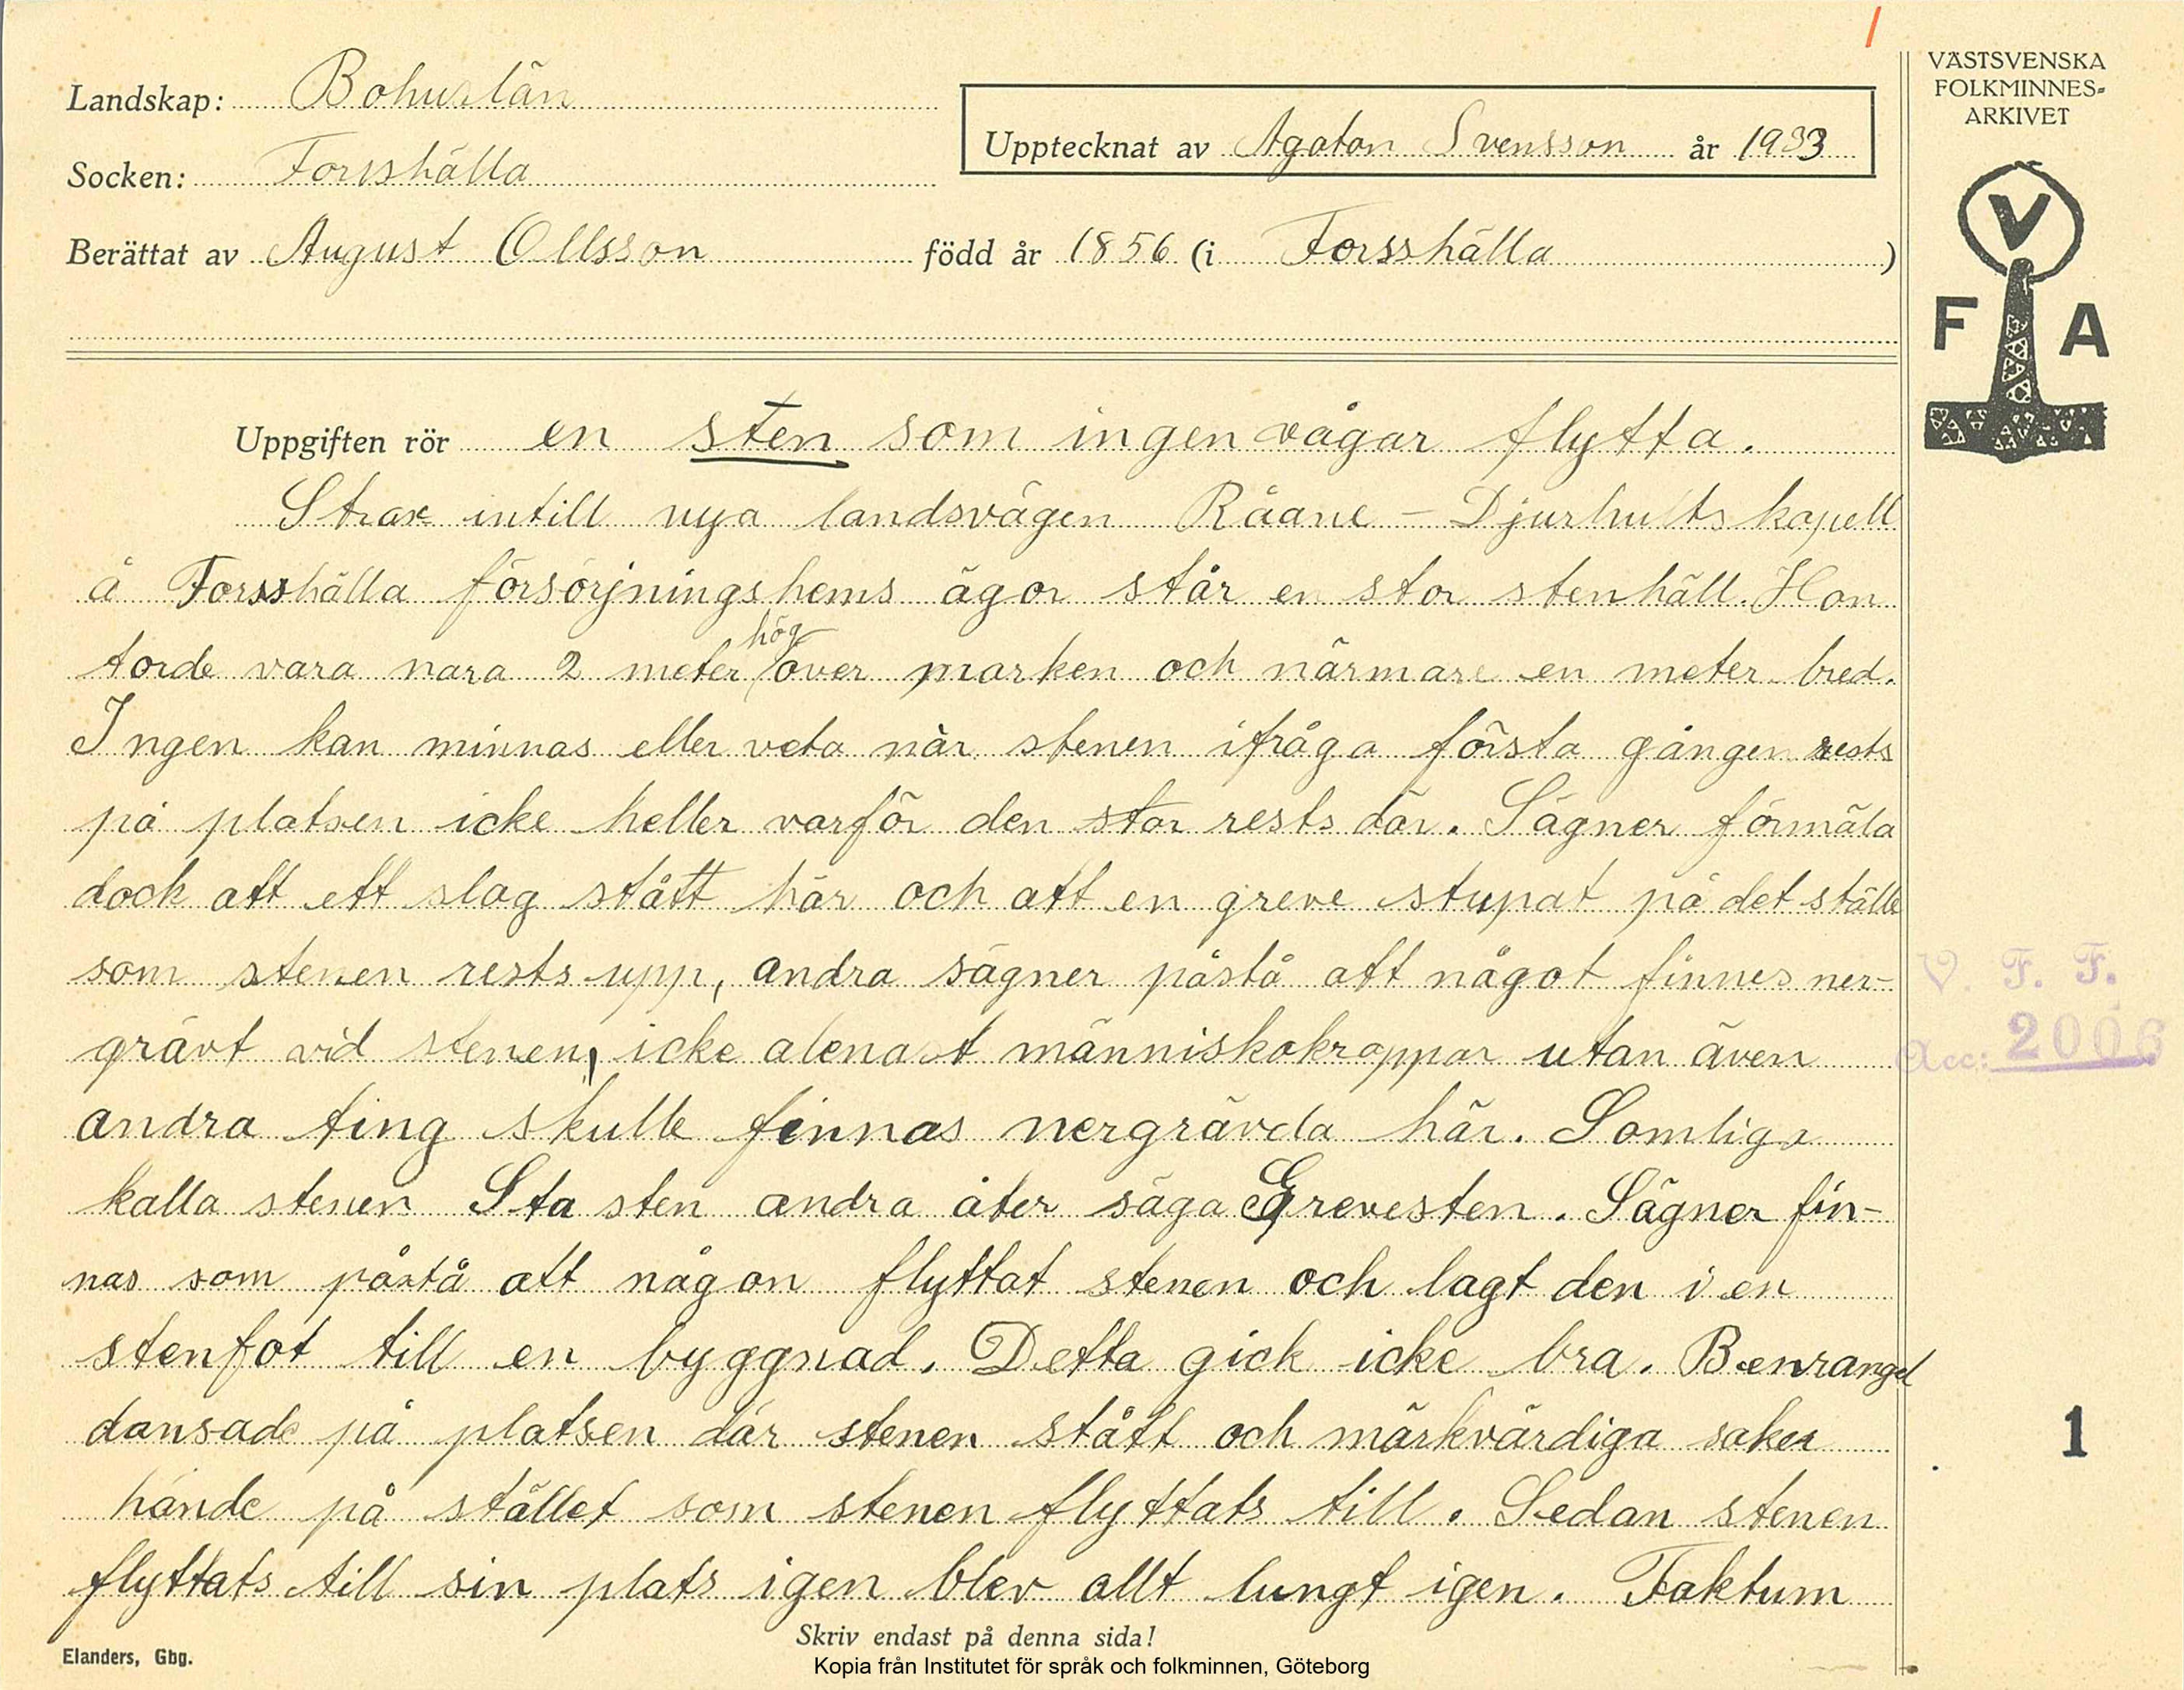 Landskap: Bohuslän
Socken: Forsshälla
Upptecknat av Agaton Svensson år 1933
Berättat av August Ollsson född år 1856 (i Forsshälla)
VÄSTSVENSKA
FOLKMINNES-
ARKIVET
V
F A
Uppgiften rör en sten som ingen vågar flytta.
Strax intill nya landsvägen Råane - Djurhults kapell
å Forsshälla försörjningshems ägor står en stor stenhäll. Hon
torde vara nära 2 meter hög över marken och närmare en meter bred.
Ingen kan minnas eller veta när stenen ifråga första gången rests
på platsen icke heller varför den star rests där. Sägner förmäla
dock att ett slag stått här och att en greve stupat på det ställe
som stenen rests upp, andra sägner påstå att något finnes ner-
grävt vid stenen, icke alenast människokroppar utan även
andra ting skulle finnas nergrävda här. Somliga
kalla stenen Sta sten andra åter säga Grevesten. Sägner fin-
nas som påstå att någon flyttat stenen och lagt den i en
stenfot till en byggnad. Detta gick icke bra. Benrangel
dansade på platsen där stenen stått och märkvärdiga saker
hände på stället som stenen flyttats till. Sedan stenen
flyttats till sin plats igen blev allt lungt igen. Faktum
V. F. F.
Acc: 2006
1
Skriv endast på denna sida!
Elanders, Gbg.
Kopia från Institutet för språk och folkminnen, Göteborg